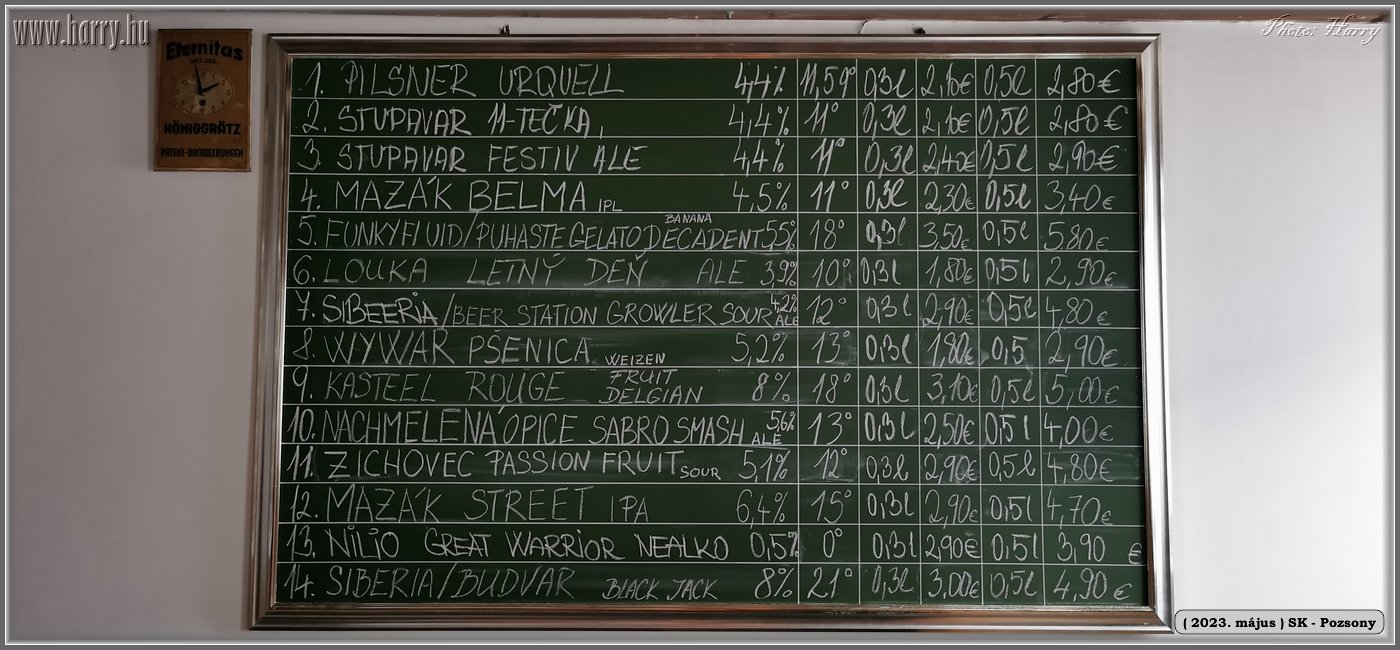 www.harry.hu
Photo: Harry
Eternitas
AKT. GES.
KÖNIGGRÄTZ
PATENT-DACHDECKUNGEN
1. PILSNER URQUELL 4,4% 11,59° 0,3l 2,10€ 0,5l 2,80€
2. STUPAVAR 11-TEČKA 4,4% 11° 0,3l 2,10€ 0,5l 2,80€
3. STUPAVAR FESTIV ALE 4,4% 11° 0,3l 2,40€ 0,5l 2,90€
4. MAZÁK BELMA IPL 4,5% 11° 0,3l 2,30€ 0,5l 3,40€
5. FUNKYFLUID/PUHASTE GELATO BANANA DECADENT 5,5% 18° 0,3l 3,50€ 0,5l 5,80€
6. LOUKA LETNÝ DEŇ ALE 3,9% 10° 0,3l 1,80€ 0,5l 2,90€
7. SIBEERIA/BEER STATION GROWLER SOUR ALE 4,2% 12° 0,3l 2,90€ 0,5l 4,80€
8. WYWAR PŠENICA WEIZEN 5,2% 13° 0,3l 1,80€ 0,5 2,90€
9. KASTEEL ROUGE FRUIT DELGIAN 8% 18° 0,3l 3,10€ 0,5l 5,00€
10. NACHMELENÁ OPICE SABRO SMASH ALE 5,6% 13° 0,3l 2,50€ 0,5l 4,00€
11. ZICHOVEC PASSION FRUIT SOUR 5,1% 12° 0,3l 2,90€ 0,5l 4,80€
12. MAZÁK STREET IPA 6,4% 15° 0,3l 2,90€ 0,5l 4,70€
13. NILIO GREAT WARRIOR NEALKO 0,5% 0° 0,3l 2,90€ 0,5l 3,90€
14. SIBERIA/BUDVAR BLACK JACK 8% 21° 0,3l 3,00€ 0,5l 4,90€
( 2023. május ) SK - Pozsony